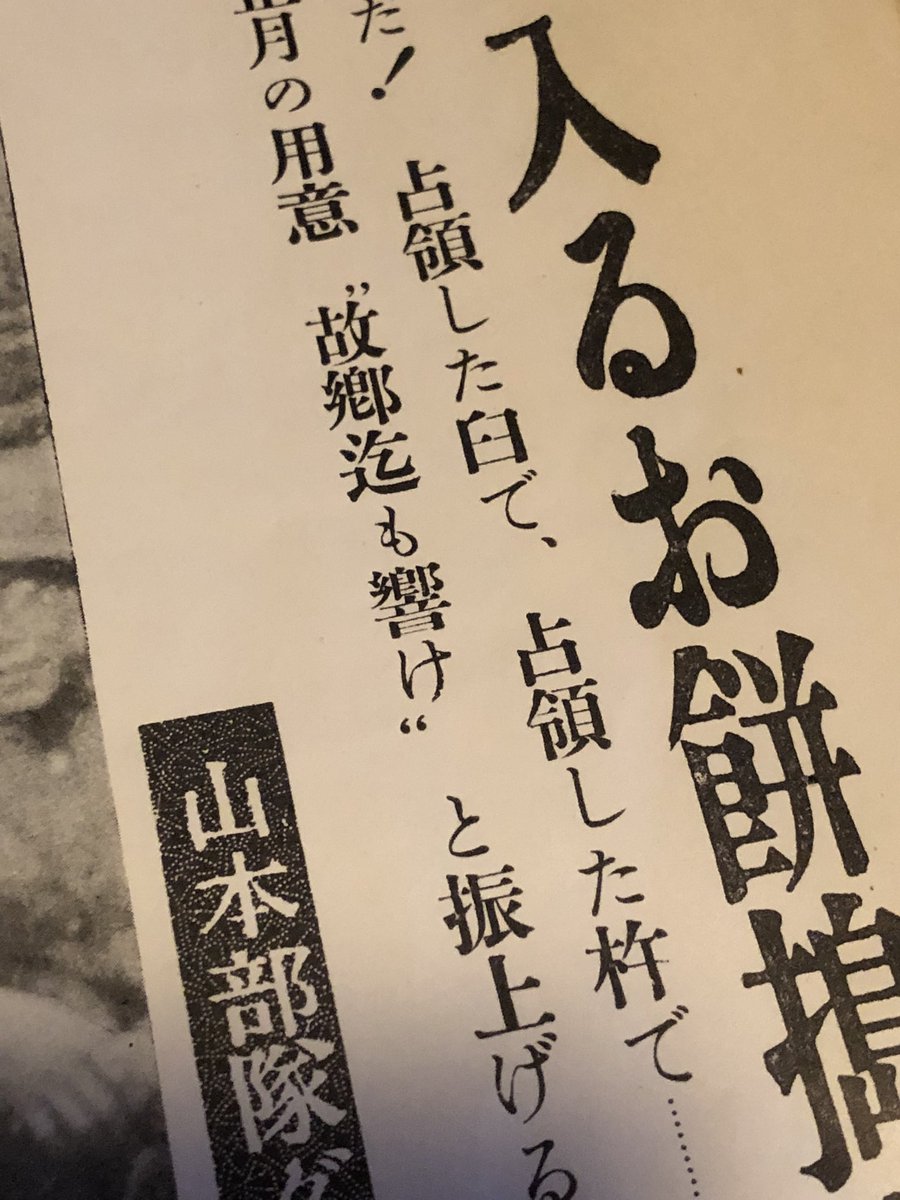 入るお餅搗
た! 占領した臼で、占領した杵で……
月の用意 〝故郷迄も響け〟と振上げる
山本部隊が